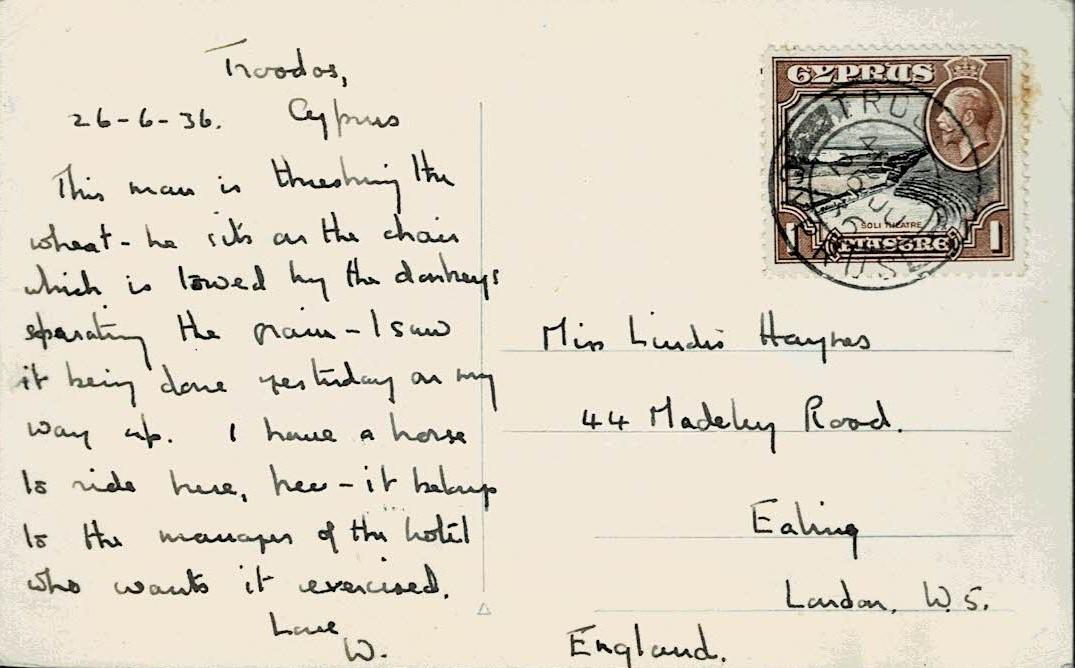 Troodos,
26-6-36. Cyprus
This man is threshing the
wheat - he sits on the chair
which is towed by the donkeys
separating the grain - I saw
it being done yesterday on my
way up. I have a horse
to ride here, hee - it belongs
to the manager of the hotel
who wants it exercised.
Love
W.
CYPRUS
SOLI THEATRE
1 PIASTRE 1
Miss Lindis Haynes
44 Madeley Road.
Ealing
London. W.5.
England.